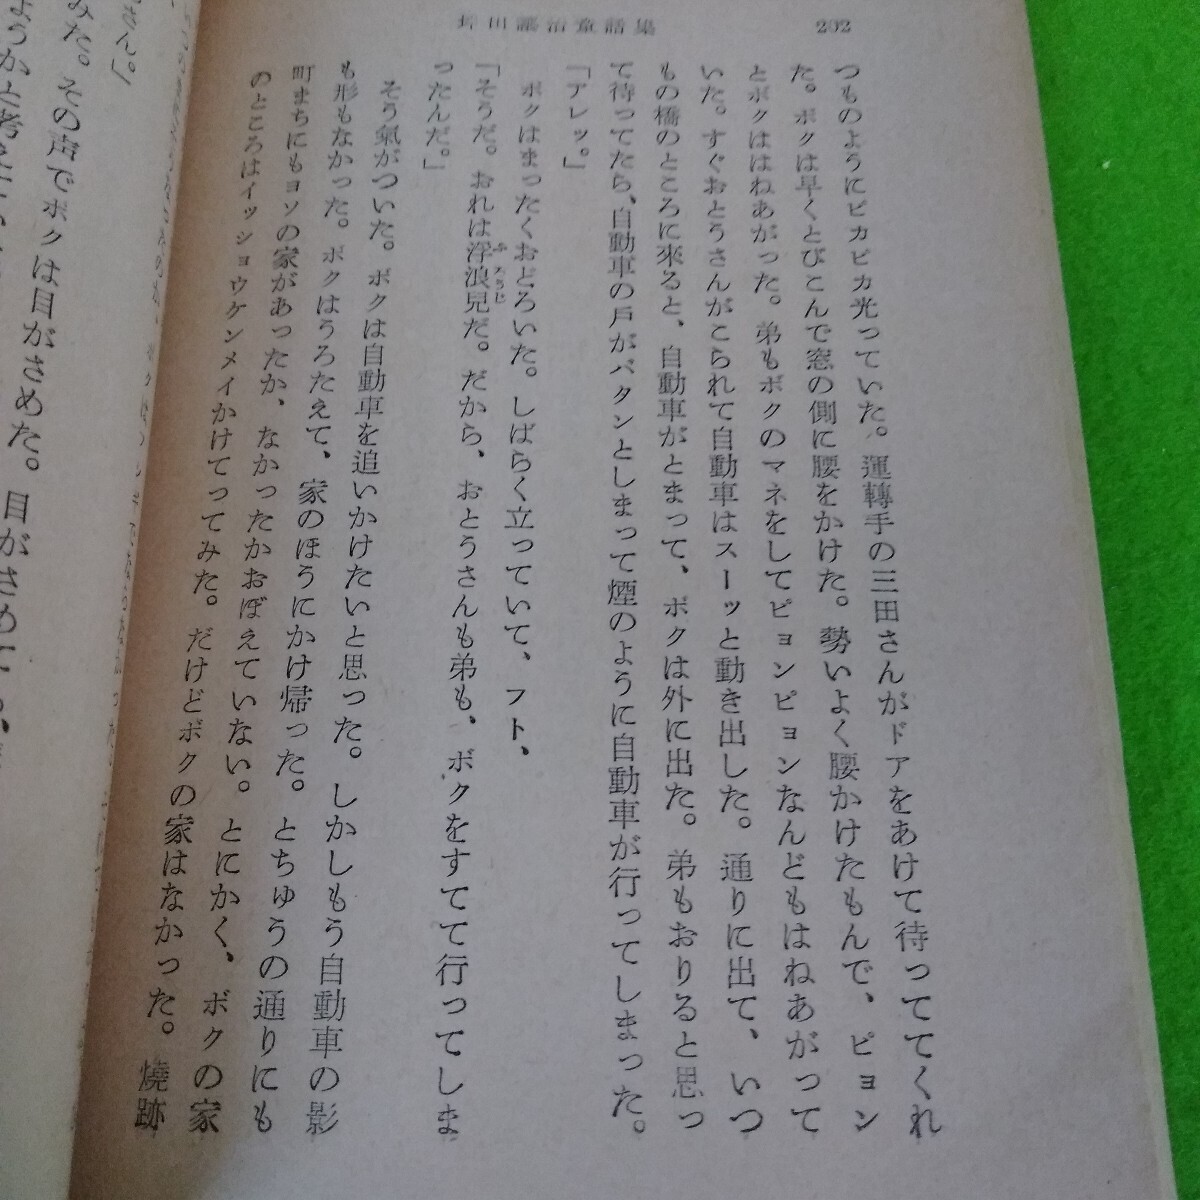 坪田譲治童話集 202
つものようにピカピカ光っていた。運轉手の三田さんがドアをあけて待っててくれ
た。ボクは早くとびこんで窓の側に腰をかけた。勢いよく腰かけたもんで、ピョン
とボクははねあがった。弟もボクのマネをしてピョンピョンなんどもはねあがって
いた。すぐおとうさんがこられて自動車はスーッと動き出した。通りに出て、いつ
もの橋のところに來ると、自動車がとまって、ボクは外に出た。弟もおりると思っ
て待ってたら、自動車の戶がバタンとしまって煙のように自動車が行ってしまった。
「アレッ。」
ボクはまったくおどろいた。しばらく立っていて、フト、
「そうだ。おれは浮浪児だ。だから、おとうさんも弟も、ボクをすてて行ってしま
ふろうじ
ったんだ。」
そう氣がついた。ボクは自動車を追いかけたいと思った。しかしもう自動車の影
も形もなかった。ボクはうろたえて、家のほうにかけ帰った。とちゅうの通りにも
町まちにもヨソの家があったか、なかったかおぼえていない。とにかく、ボクの家
のところはイッショウケンメイかけてってみた。だけどボクの家はなかった。燒跡
さん。」
みた。その声でボクは目がさめた。目がさめて
ようかと考えて